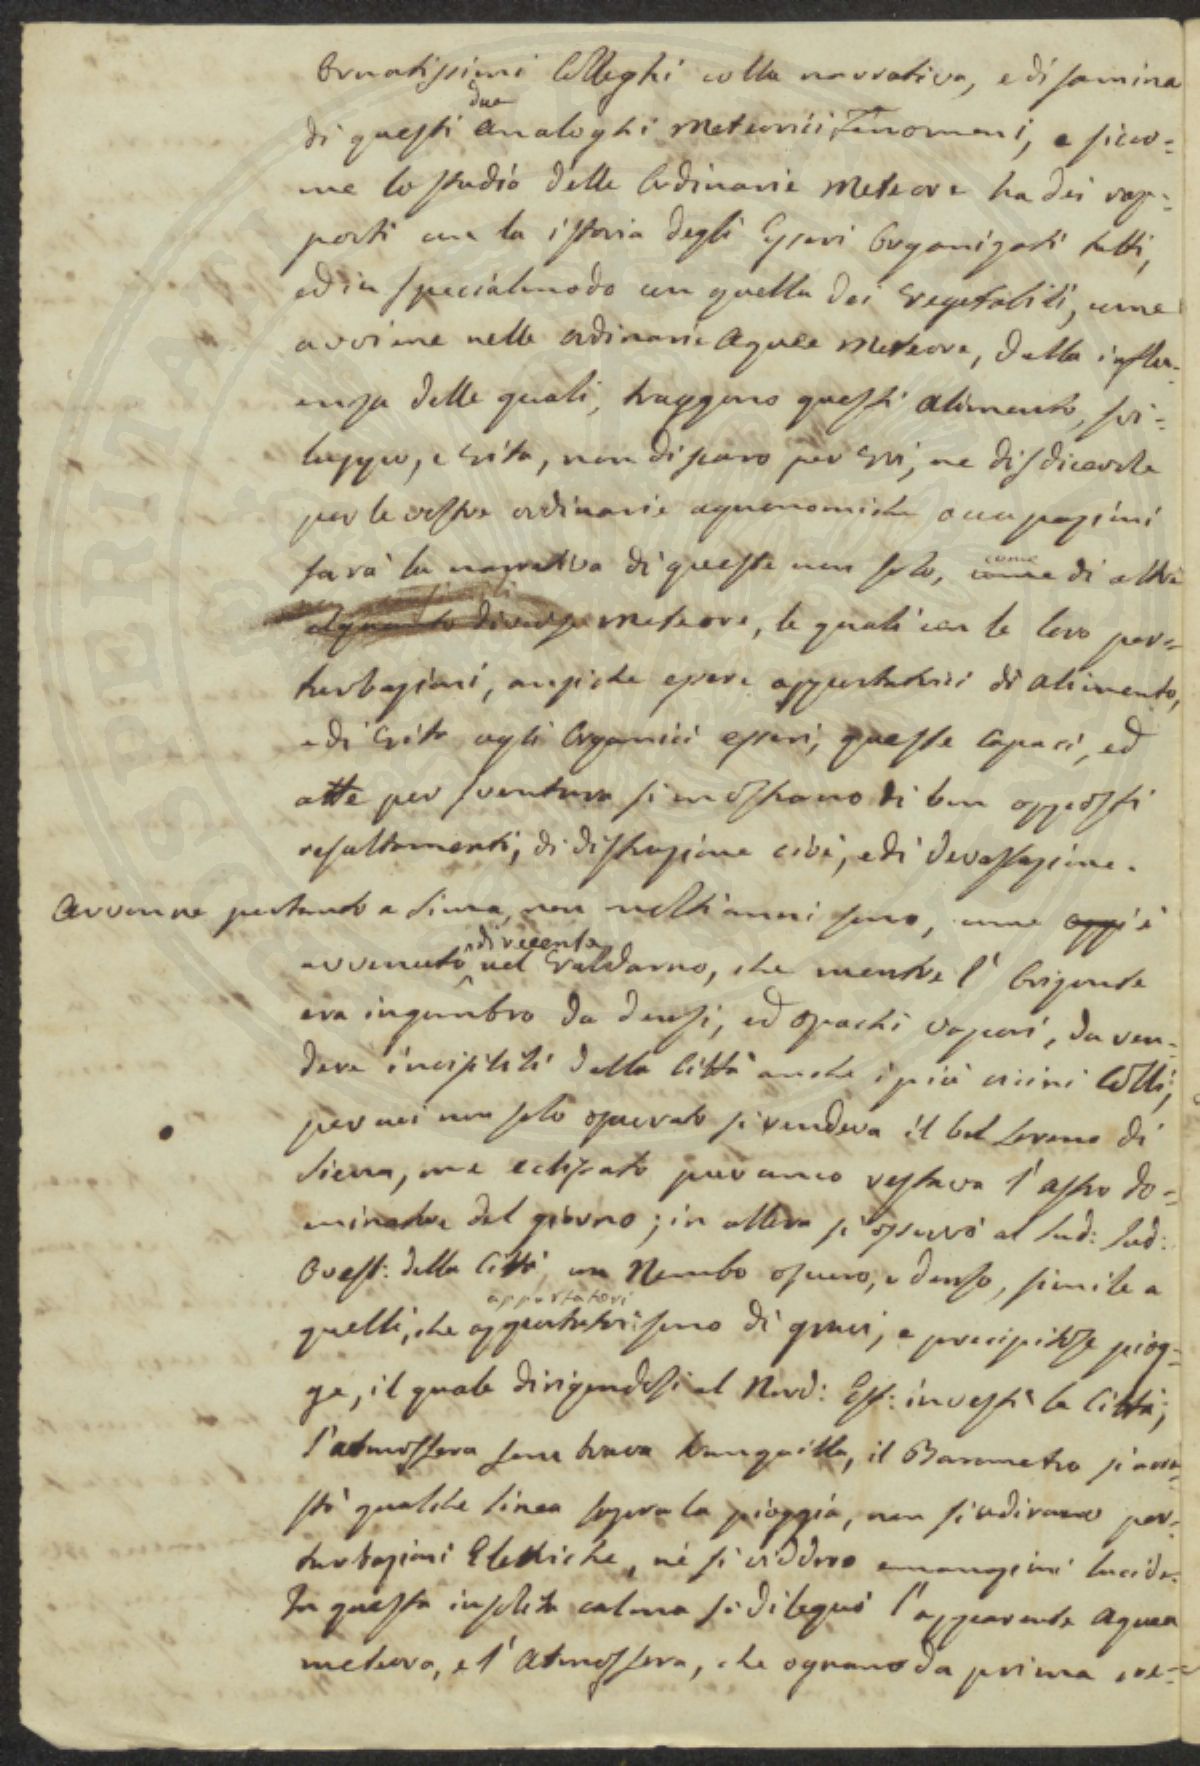 Ornatissimi Colleghi colla narrativa, e disamina
di questi due analoghi Meteorici Fenomeni, e sicco=
me lo studio delle Ordinarie Meteore ha dei rap=
porti con la istoria degli Esseri Organizati tutti,
ed in specialmodo con quella dei Vegetabili, come
avviene nelle ordinarie Aquee Meteore, dalla influ=
enza delle quali, traggono questi alimento, svi=
luppo, e vita, non discaro per Voi, ne disdicevole
per le vostre ordinarie agronomiche occupazioni
sarà la narrativa di queste non solo, come come di altre
alquanto diverse Meteore, le quali con le loro per=
turbazioni, anziche essere apportatrici di alimento,
e di vita agli Organici esseri, queste capaci, ed
atte per sventura si mostrano di ben opposti
resultamenti, di distruzione cioè, e di devastazione.
Avvenne pertanto a Siena, non molti anni sono, come oggi è
avvenuto di recente nel Valdarno, che mentre l' Orizonte
era ingombro da densi, ed opachi vapori, da ren=
dere invisibili dalla Città anche i più vicini Colli,
per cui non solo oscurato si rendeva il bel sereno di
Siena, ma eclissato per anco restava l' astro do=
minatore del giorno; in allora si osservò al Sud: Sud:
Ovest: della Città, un Nembo oscuro, e denso, simile a
quelli, che apportatrici apportatori sono di gravi, e precipitose piog=
ge, il quale dirigendosi al Nord: Est: investì la Città;
l' atmosfera sene stava tranquilla, il Barometro si arre=
stò qualche linea sopra la pioggia, non si udirono per=
turbazioni Elettriche, né si viddero emanazioni lucide.
In questa insolita calma si dileguò l' apparente Aquea
meteora, e l' Atmosfera, che ognano da prima